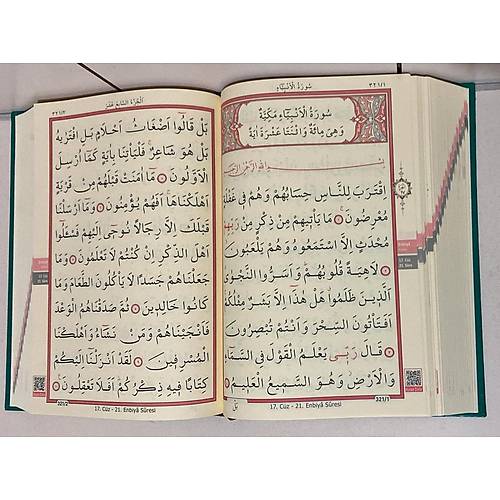 سُورَةُ الْاَنْبِيَاءِ
٣٢١/١
سُورَةُ الْاَنْبِيَاءِ مَكِّيَّةٌ
وَهِيَ مِائَةٌ وَاثْنَتَا عَشْرَةَ اٰيَةً
بِسْمِ اللّٰهِ الرَّحْمٰنِ الرَّحِيمِ
اِقْتَرَبَ لِلنَّاسِ حِسَابُهُمْ وَهُمْ فِي غَفْلَةٍ
مُعْرِضُونَ مَا يَأْتِيهِمْ مِنْ ذِكْرٍ مِنْ رَبِّهِمْ
مُحْدَثٍ اِلَّا اسْتَمَعُوهُ وَهُمْ يَلْعَبُونَ
لَاهِيَةً قُلُوبُهُمْ وَاَسَرُّوا النَّجْوٰى
اَلَّذِينَ ظَلَمُوا هَلْ هٰذَا اِلَّا بَشَرٌ مِثْلُكُمْ
اَفَتَأْتُونَ السِّحْرَ وَاَنْتُمْ تُبْصِرُونَ
قَالَ رَبِّي يَعْلَمُ الْقَوْلَ فِي السَّمَاءِ
وَالْاَرْضِ وَهُوَ السَّمِيعُ الْعَلِيمُ
بَلْ
321/1
17. Cüz - 21. Enbiyâ Sûresi
اَلْجُزْءُ السَّابِعَ عَشَرَ
٣٢١/٢
بَلْ قَالُوا اَضْغَاثُ اَحْلَامٍ بَلِ افْتَرٰيهُ
بَلْ هُوَ شَاعِرٌ فَلْيَأْتِنَا بِاٰيَةٍ كَمَا اُرْسِلَ
الْاَوَّلُونَ مَا اٰمَنَتْ قَبْلَهُمْ مِنْ قَرْيَةٍ
اَهْلَكْنَاهَا اَفَهُمْ يُؤْمِنُونَ وَمَا اَرْسَلْنَا
قَبْلَكَ اِلَّا رِجَالًا نُوحِي اِلَيْهِمْ فَسْـَٔلُوا
اَهْلَ الذِّكْرِ اِنْ كُنْتُمْ لَا تَعْلَمُونَ وَمَا
جَعَلْنَاهُمْ جَسَدًا لَا يَأْكُلُونَ الطَّعَامَ وَمَا
كَانُوا خَالِدِينَ ثُمَّ صَدَقْنَاهُمُ الْوَعْدَ
فَاَنْجَيْنَاهُمْ وَمَنْ نَشَاءُ وَاَهْلَكْنَا
الْمُسْرِفِينَ لَقَدْ اَنْزَلْنَا اِلَيْكُمْ
كِتَابًا فِيهِ ذِكْرُكُمْ اَفَلَا تَعْقِلُونَ
321/2
17. Cüz - 21. Enbiyâ Sûresi